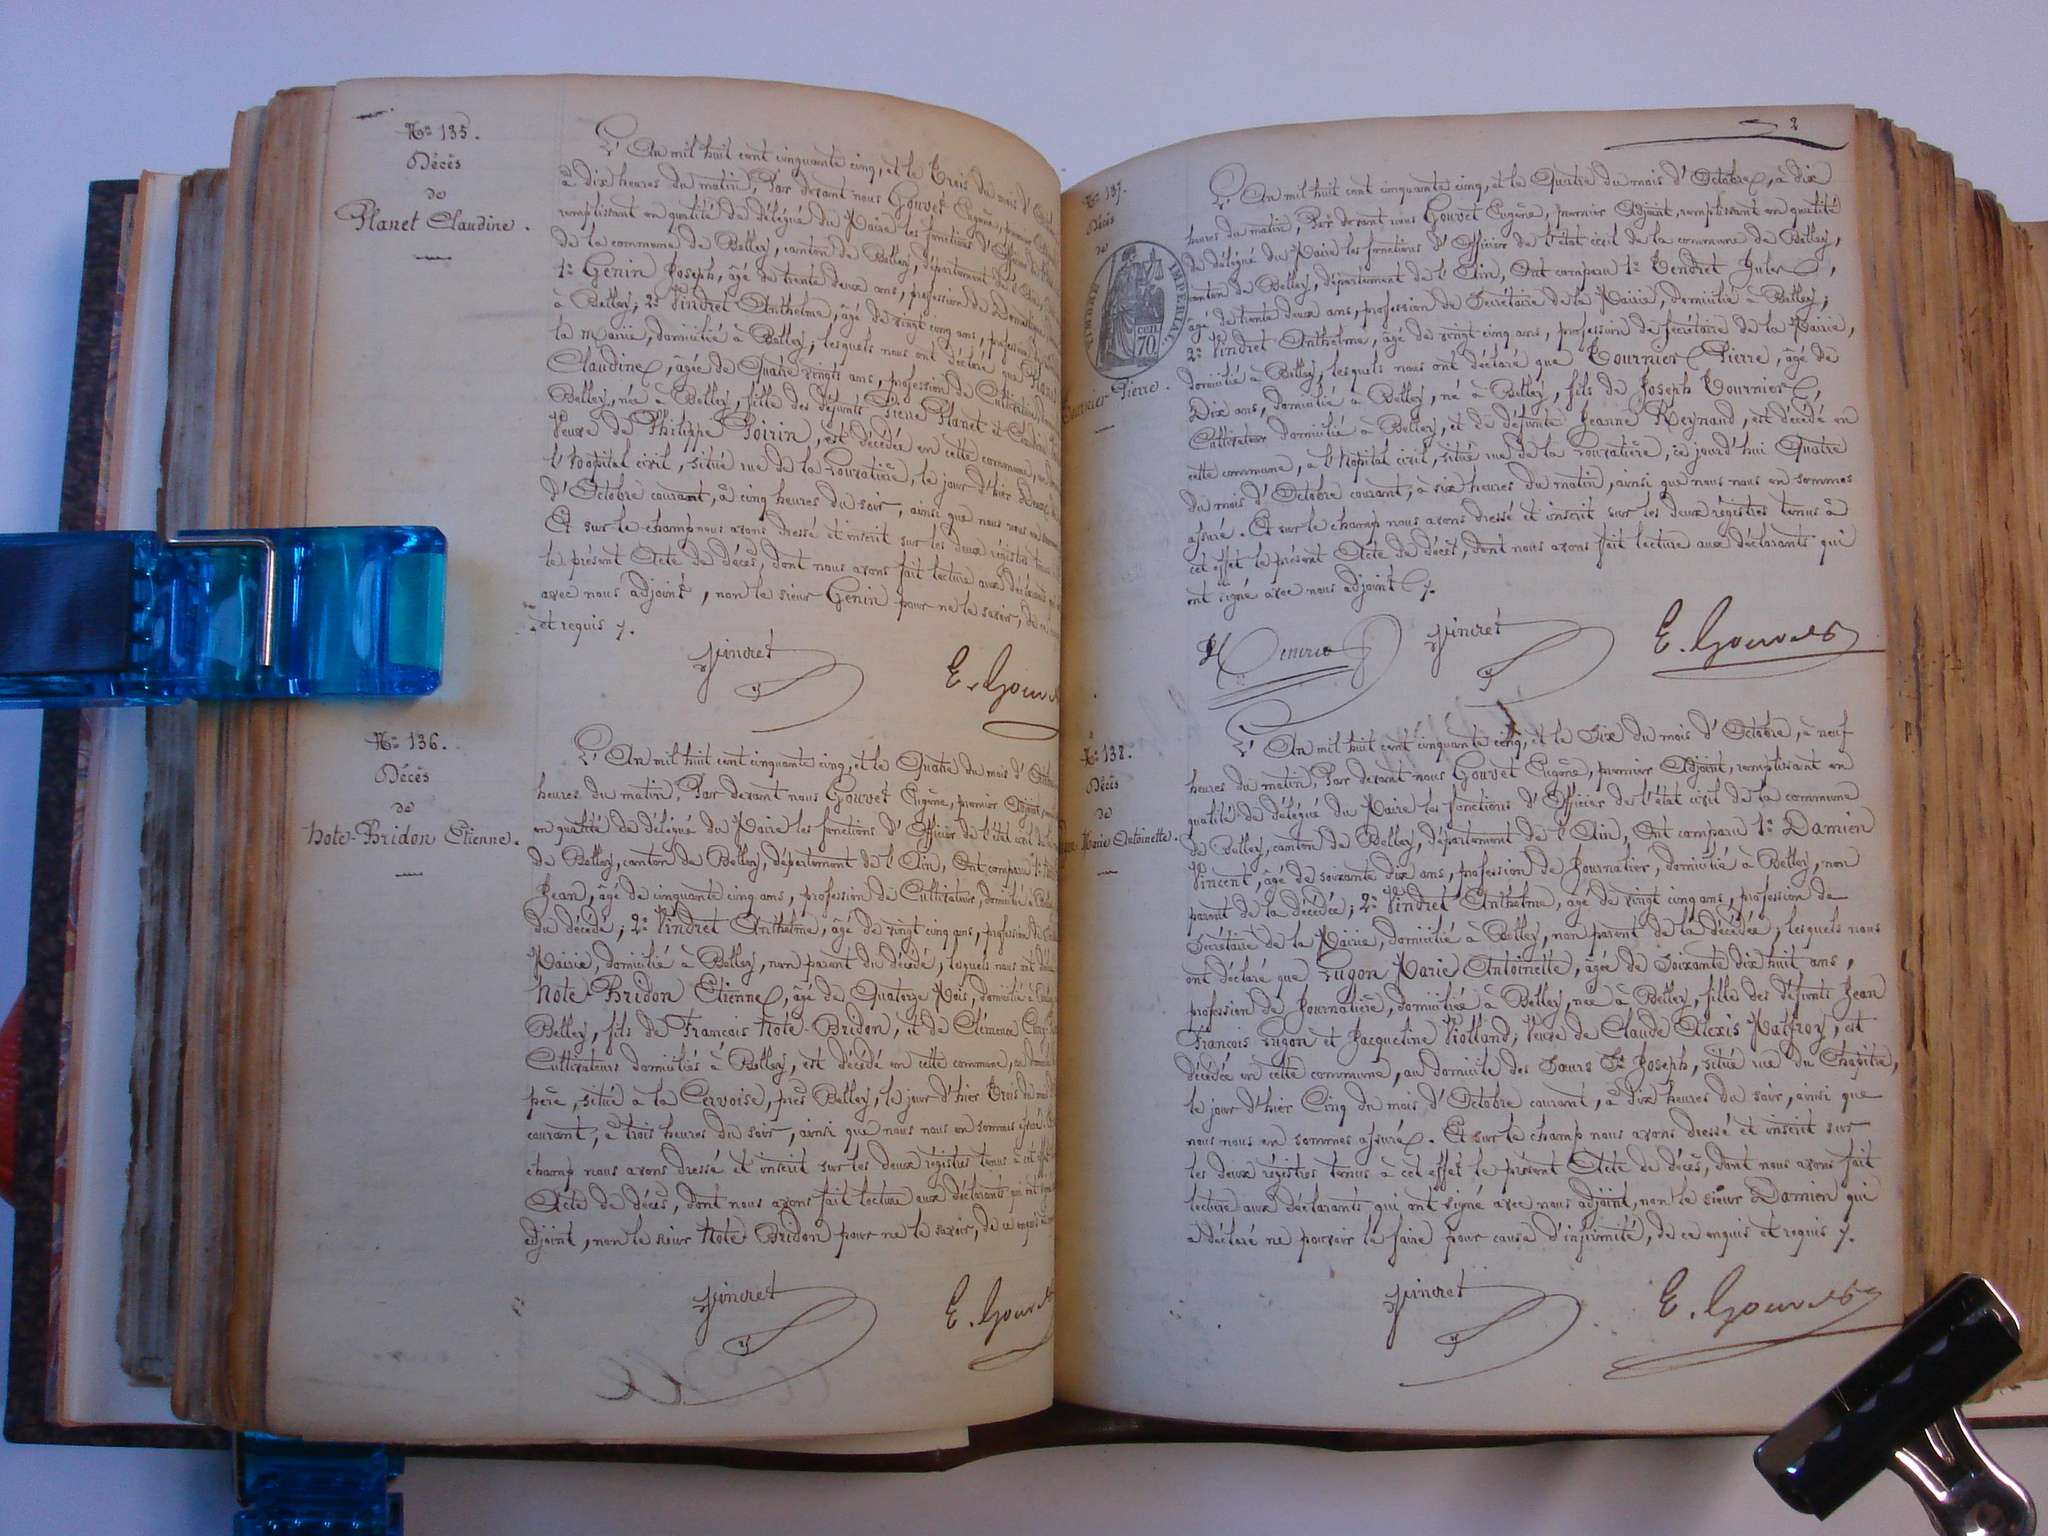 Nº 135.
Décès
de
Planet Claudine.
L'An mil huit cent cinquante cinq, et le Trois du mois d'
à dix heures du matin, Par devant nous Gouvet Eugène, premier
remplissant en qualité de délégué du Maire les fonctions d'Officier de
de la commune de Belley, canton de Belley, département de l'Ain,
1º Genin Joseph, âgé de trente deux ans, profession de Domestique,
à Belley; 2º Vindret Anthelme, âgé de vingt cinq ans, profession
la Mairie, domicilié à Belley, lesquels nous ont déclaré que Planet
Claudine, âgée de Quatre vingts ans, profession de Cultivatrice,
Belley, née à Belley, fille des défunts Pierre Planet et Claudine
Veuve de Philippe Poirin, est décédée en cette commune,
l'hôpital civil, situé rue de la Louvatière, le jour d'hier Deux
d'Octobre courant, à cinq heures du soir, ainsi que nous nous en sommes
Et sur le champ nous avons dressé et inscrit sur les deux régistres tenus
le présent Acte de décès, dont nous avons fait lecture aux déclarants qui
avec nous adjoint, non le sieur Genin pour ne le savoir, de ce
et requis.
Vindret
E. Gouvet
Nº 136.
Décès
de
Hote-Bridon Etienne.
L'An mil huit cent cinquante cinq, et le Quatre du mois d'Octobre
heures du matin, Par devant nous Gouvet Eugène, premier Adjoint,
en qualité de délégué du Maire les fonctions d'Officier de l'état civil de la
de Belley, canton de Belley, département de l'Ain, Ont comparu 1º
Jean, âgé de cinquante cinq ans, profession de Cultivateur, domicilié à
du décédé; 2º Vindret Anthelme, âgé de vingt cinq ans, profession de
Mairie, domicilié à Belley, non parent du décédé, lesquels nous ont
Hote-Bridon Etienne, âgé de Quatorze Mois, domicilié à
Belley, fils de François Hote-Bridon, et de Clémence
Cultivateurs domiciliés à Belley, est décédé en cette commune, au
père, situé à la Cervoise, près Belley, le jour d'hier Trois du mois
courant, à trois heures du soir, ainsi que nous nous en sommes assuré.
champ nous avons dressé et inscrit sur les deux régistres tenus à cet effet
Acte de décès, dont nous avons fait lecture aux déclarants qui ont
adjoint, non le sieur Hote-Bridon pour ne le savoir, de ce enquis
Vindret
E. Gouvet
2
Nº 137.
Décès
de
TIMBRE IMPERIAL
70 cen
Tournier Pierre.
L'An mil huit cent cinquante cinq, et le Quatre du mois d'Octobre, à dix
heures du matin, Par devant nous Gouvet Eugène, premier Adjoint, remplissant en qualité
de délégué du Maire les fonctions d'Officier de l'état civil de la commune de Belley,
canton de Belley, département de l'Ain, Ont comparu 1º Tendret Jules,
âgé de trente deux ans, profession de Secrétaire de la Mairie, domicilié à Belley;
2º Vindret Anthelme, âgé de vingt cinq ans, profession de Secrétaire de la Mairie,
domicilié à Belley, lesquels nous ont déclaré que Tournier Pierre, âgé de
Dix ans, domicilié à Belley, né à Belley, fils de Joseph Tournier,
Cultivateur domicilié à Belley, et de défunte Jeanne Reynand, est décédé en
cette commune, à l'hôpital civil, situé rue de la Louvatière, ce jourd'hui Quatre
du mois d'Octobre courant, à six heures du matin, ainsi que nous nous en sommes
assuré. Et sur le champ nous avons dressé et inscrit sur les deux régistres tenus à
cet effet le présent Acte de décès, dont nous avons fait lecture aux déclarants qui
ont signé avec nous adjoint.
Vindret
E. Gouvet
Nº 138.
Décès
de
Marie Antoinette.
L'An mil huit cent cinquante cinq, et le Six du mois d'Octobre, à neuf
heures du matin, Par devant nous Gouvet Eugène, premier Adjoint, remplissant en
qualité de délégué du Maire les fonctions d'Officier de l'état civil de la commune
de Belley, canton de Belley, département de l'Ain, Ont comparu 1º Damien
Vincent, âgé de soixante dix ans, profession de Journalier, domicilié à Belley, non
parent de la décédée; 2º Vindret Anthelme, âgé de vingt cinq ans, profession de
Secrétaire de la Mairie, domicilié à Belley, non parent de la décédée, lesquels nous
ont déclaré que Lugon Marie Antoinette, âgée de Soixante dix huit ans,
profession de Journalière, domiciliée à Belley, née à Belley, fille des défunts Jean
François Lugon et Jacqueline Rolland; Veuve de Claude Alexis Matfroy, est
décédée en cette commune, au domicile des Sœurs St Joseph, situé rue du Chapitre,
le jour d'hier Cinq du mois d'Octobre courant, à dix heures du soir, ainsi que
nous nous en sommes assuré. Et sur le champ nous avons dressé et inscrit sur
les deux régistres tenus à cet effet le présent Acte de décès, dont nous avons fait
lecture aux déclarants qui ont signé avec nous adjoint, non le sieur Damien qui
a déclaré ne pouvoir le faire pour cause d'infirmité, de ce enquis et requis.
Vindret
E. Gouvet